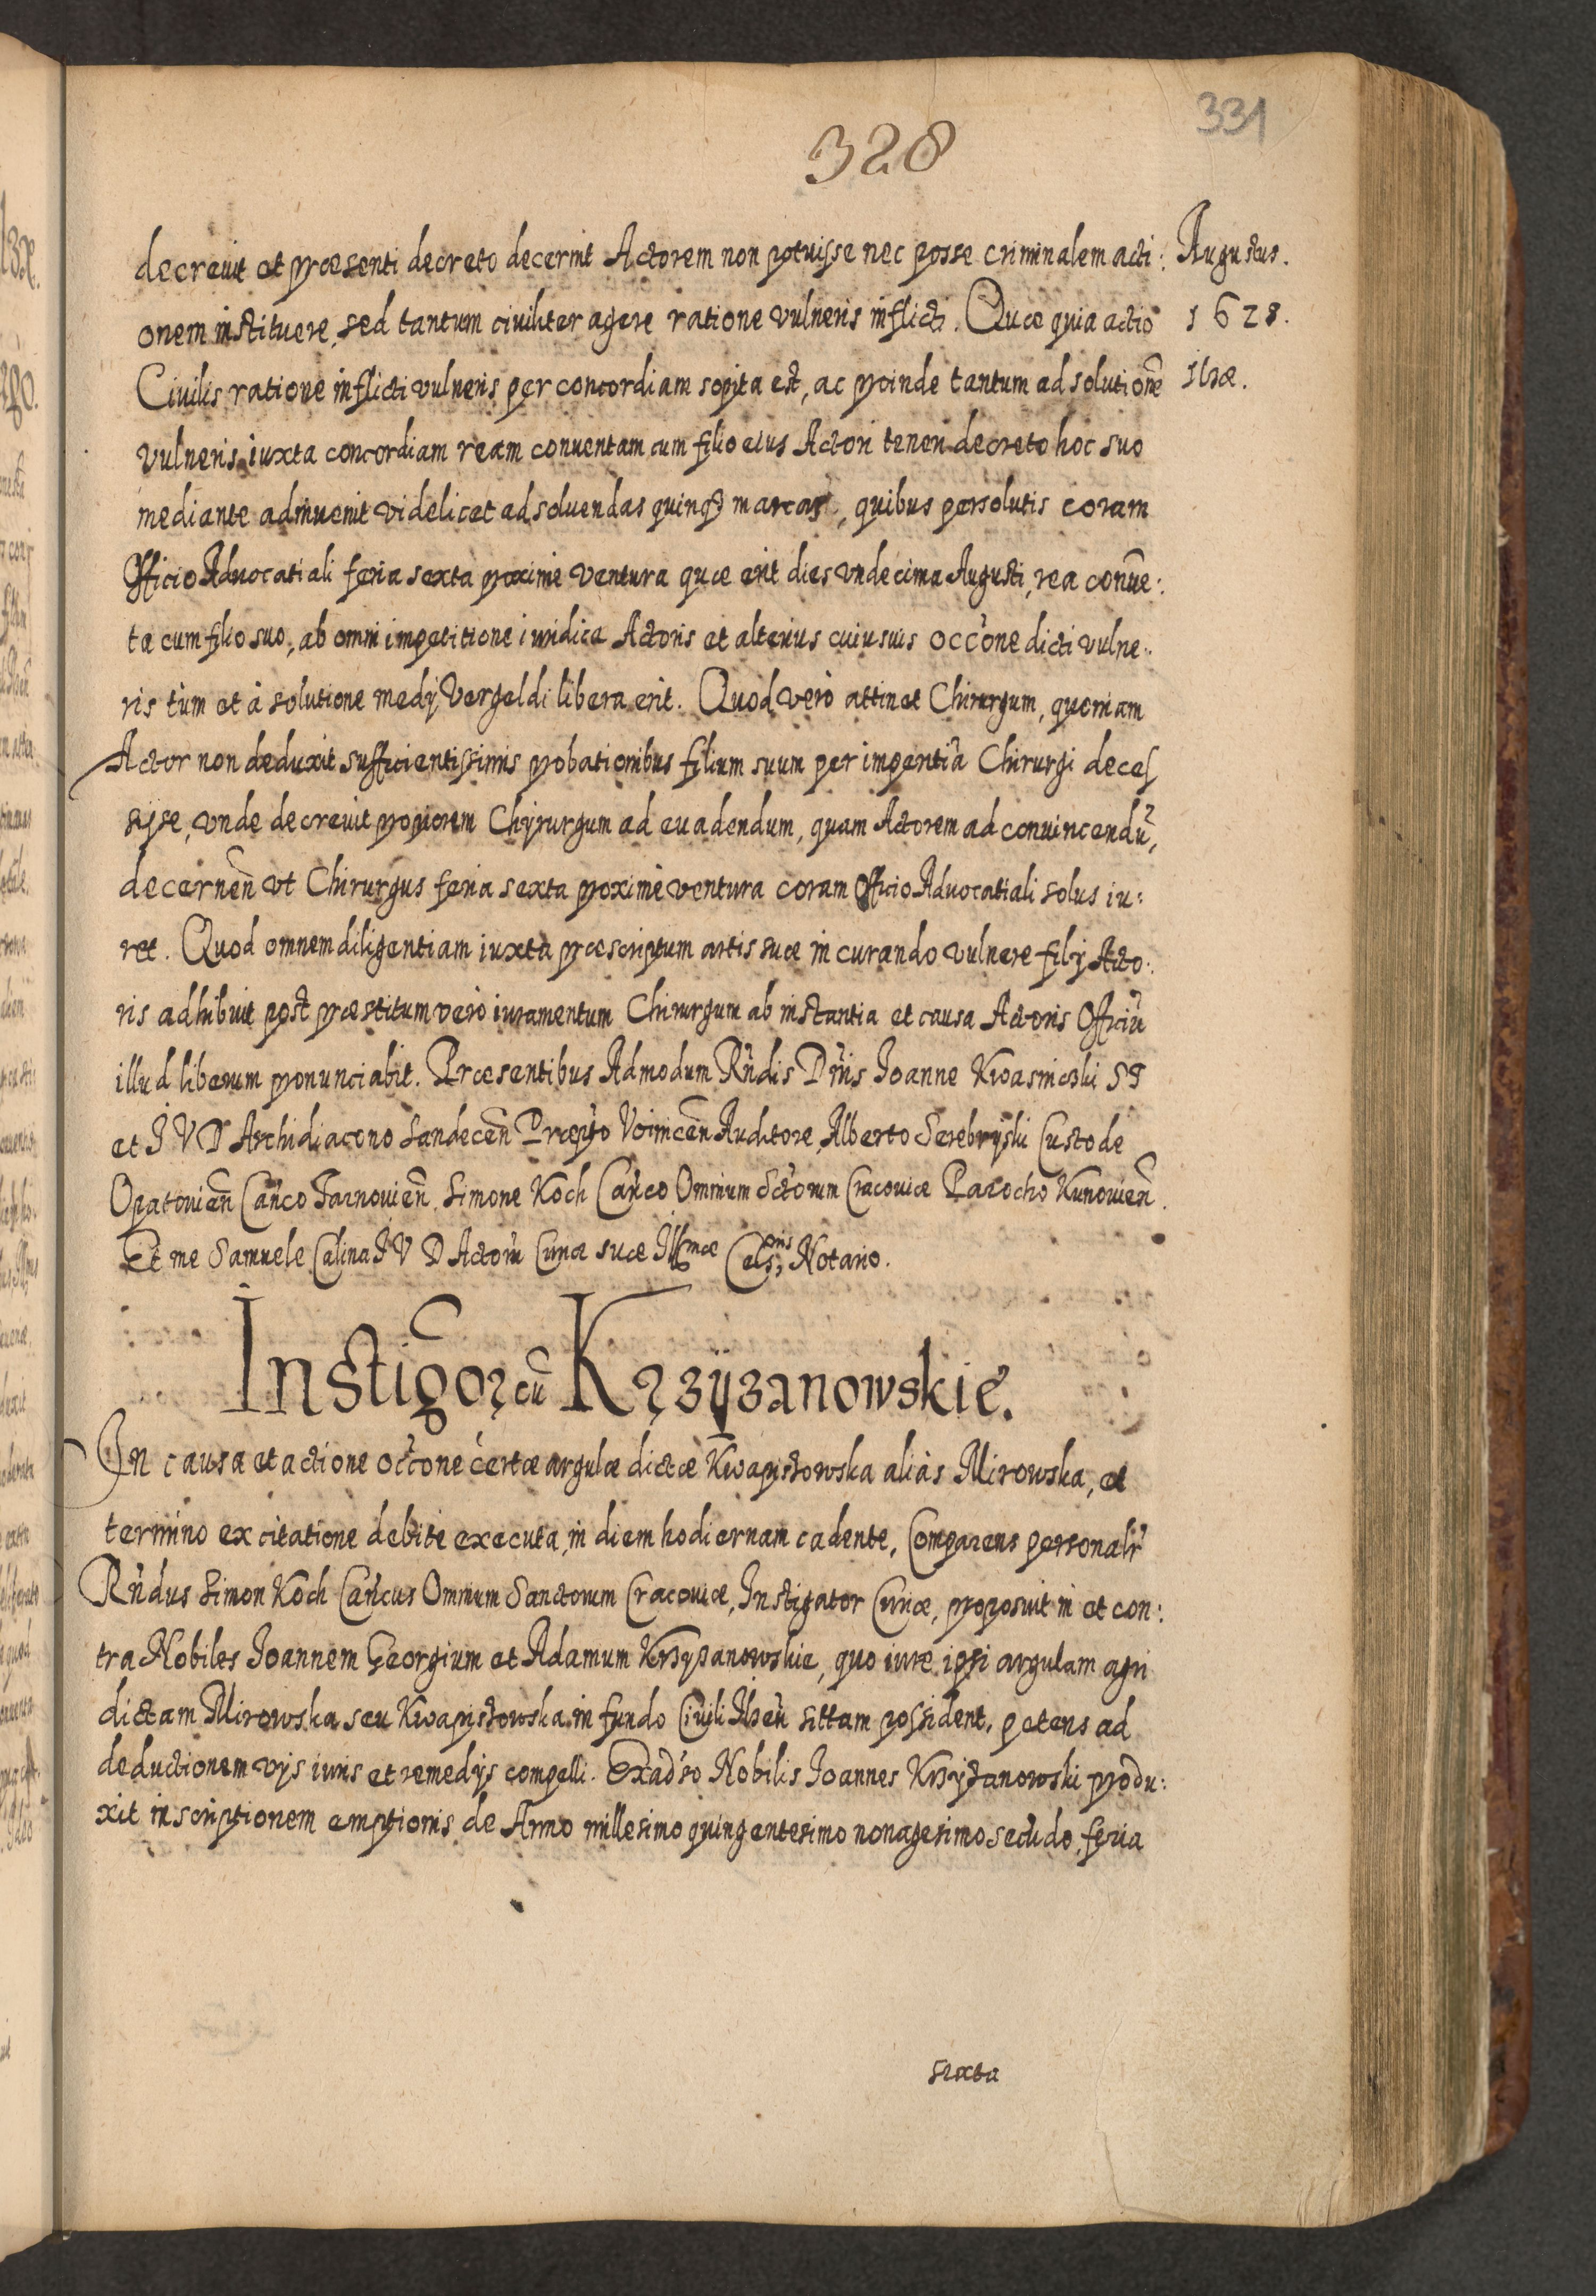 331
328
decreuit et præsenti decreto decernit Actorem non potuisse nec posse criminalem acti:
Augustus.
onem instituere, sed tantum ciuiliter agere ratione vulneris inflicti. Quæ quia actio
1628.
Ciuilis ratione inflicti vulneris per concordiam sopita est, ac proinde tantum ad solutionē
Ilzæ.
vulneris iuxta concordiam ream conuentam cum filio eius Actori teneri decreto hoc suo
mediante adinuenit videlicet ad soluendas quinqꝫ marcas, quibus persolutis coram
Officio Aduocatiali feria sexta proximè ventura quæ erit dies vndecima Augusti, rea conūe:
ta cum filio suo, ab omni impetitione iuridica Actoris et alterius cuiusuis occ͠one dicti vulne:
ris tùm et à solutione medÿ Vergeldi libera erit. Quod verò attinet Chirurgum, quoniam
Actor non deduxit sufficientissimis probationibus filium suum per imperitiā Chirurgi deces
sisse, vnde decreuit propiorem Chyrurgum ad euadendum, quam Actorem ad conuincendū,
decernen̄ vt Chirurgus feria sexta proximè ventura coram Officio Aduocatiali solus iu:
ret. Quod omnem diligentiam iuxta præscriptum artis suæ in curando vulnere filÿ Acto:
ris adhibuit post præstitum verò iuramentum Chirurgum ab instantia et causa Actoris Officiū
illud liberum pronunciabit. Præsentibus Admodum Rn̄dis Dn̄is Joanne Kwasnicski SS
et J V D Archidiacono Sandecen̄ Præp̄to Voinicen̄ Auditore, Alberto Serebryski Custode
Opatouien̄ Can̄co Tarnouien̄. Simone Koch Can̄co Omnium Sctōrum Cracouiæ Parocho Kunouien̄.
Et me Samuele Calina J V D Actorū Curiæ suæ Illmæ Cels:nis Notario.
Instigōr cū Krzÿzanowskie.
In causa et actione occ͠one certæ argulæ dictæ Kwapiszowska aliàs Mirowska, et
termino ex citatione debitè executa, in diem hodiernam cadente, Comparens personalr̄
Rn̄dus Simon Koch Can̄cus Omnium Sanctorum Cracouiæ, Instigator Curiæ, proposuit in et con:
tra Nobiles Joannem Georgium et Adamum Krzyzanowskie, quo iure ipsi argulam agri
dictam Mirowska seu Kwapiszowska in fundo Ciuili Ilzen̄ sittam possident, petens ad
deductionem vÿs iuris et remedÿs compelli. Exad͠so Nobilis Joannes Krzyżanowski produ:
xit inscriptionem emptionis de Anno millesimo quingentesimo nonagesimo secūdo, feria
sexta